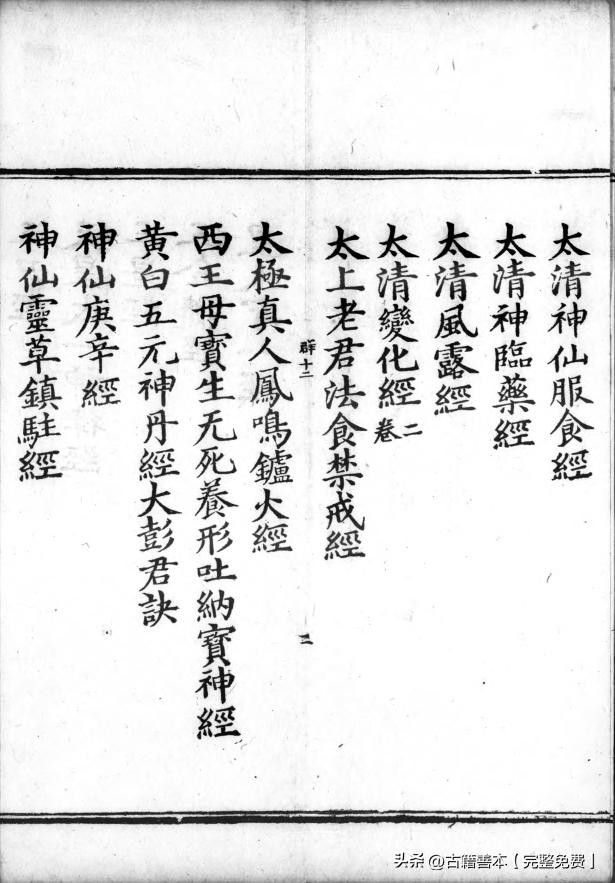 太清神仙服食經
太清神臨藥經
太清風露經
太清變化經二卷
太上老君法食禁戒經
群十二
二
太極真人鳳鳴鑪火經
西王母寳生无死養形吐納寳神經
黃白五元神丹經大彭君訣
神仙庚辛經
神仙靈草鎮駐經
头杀@古籍善本【完整免费】